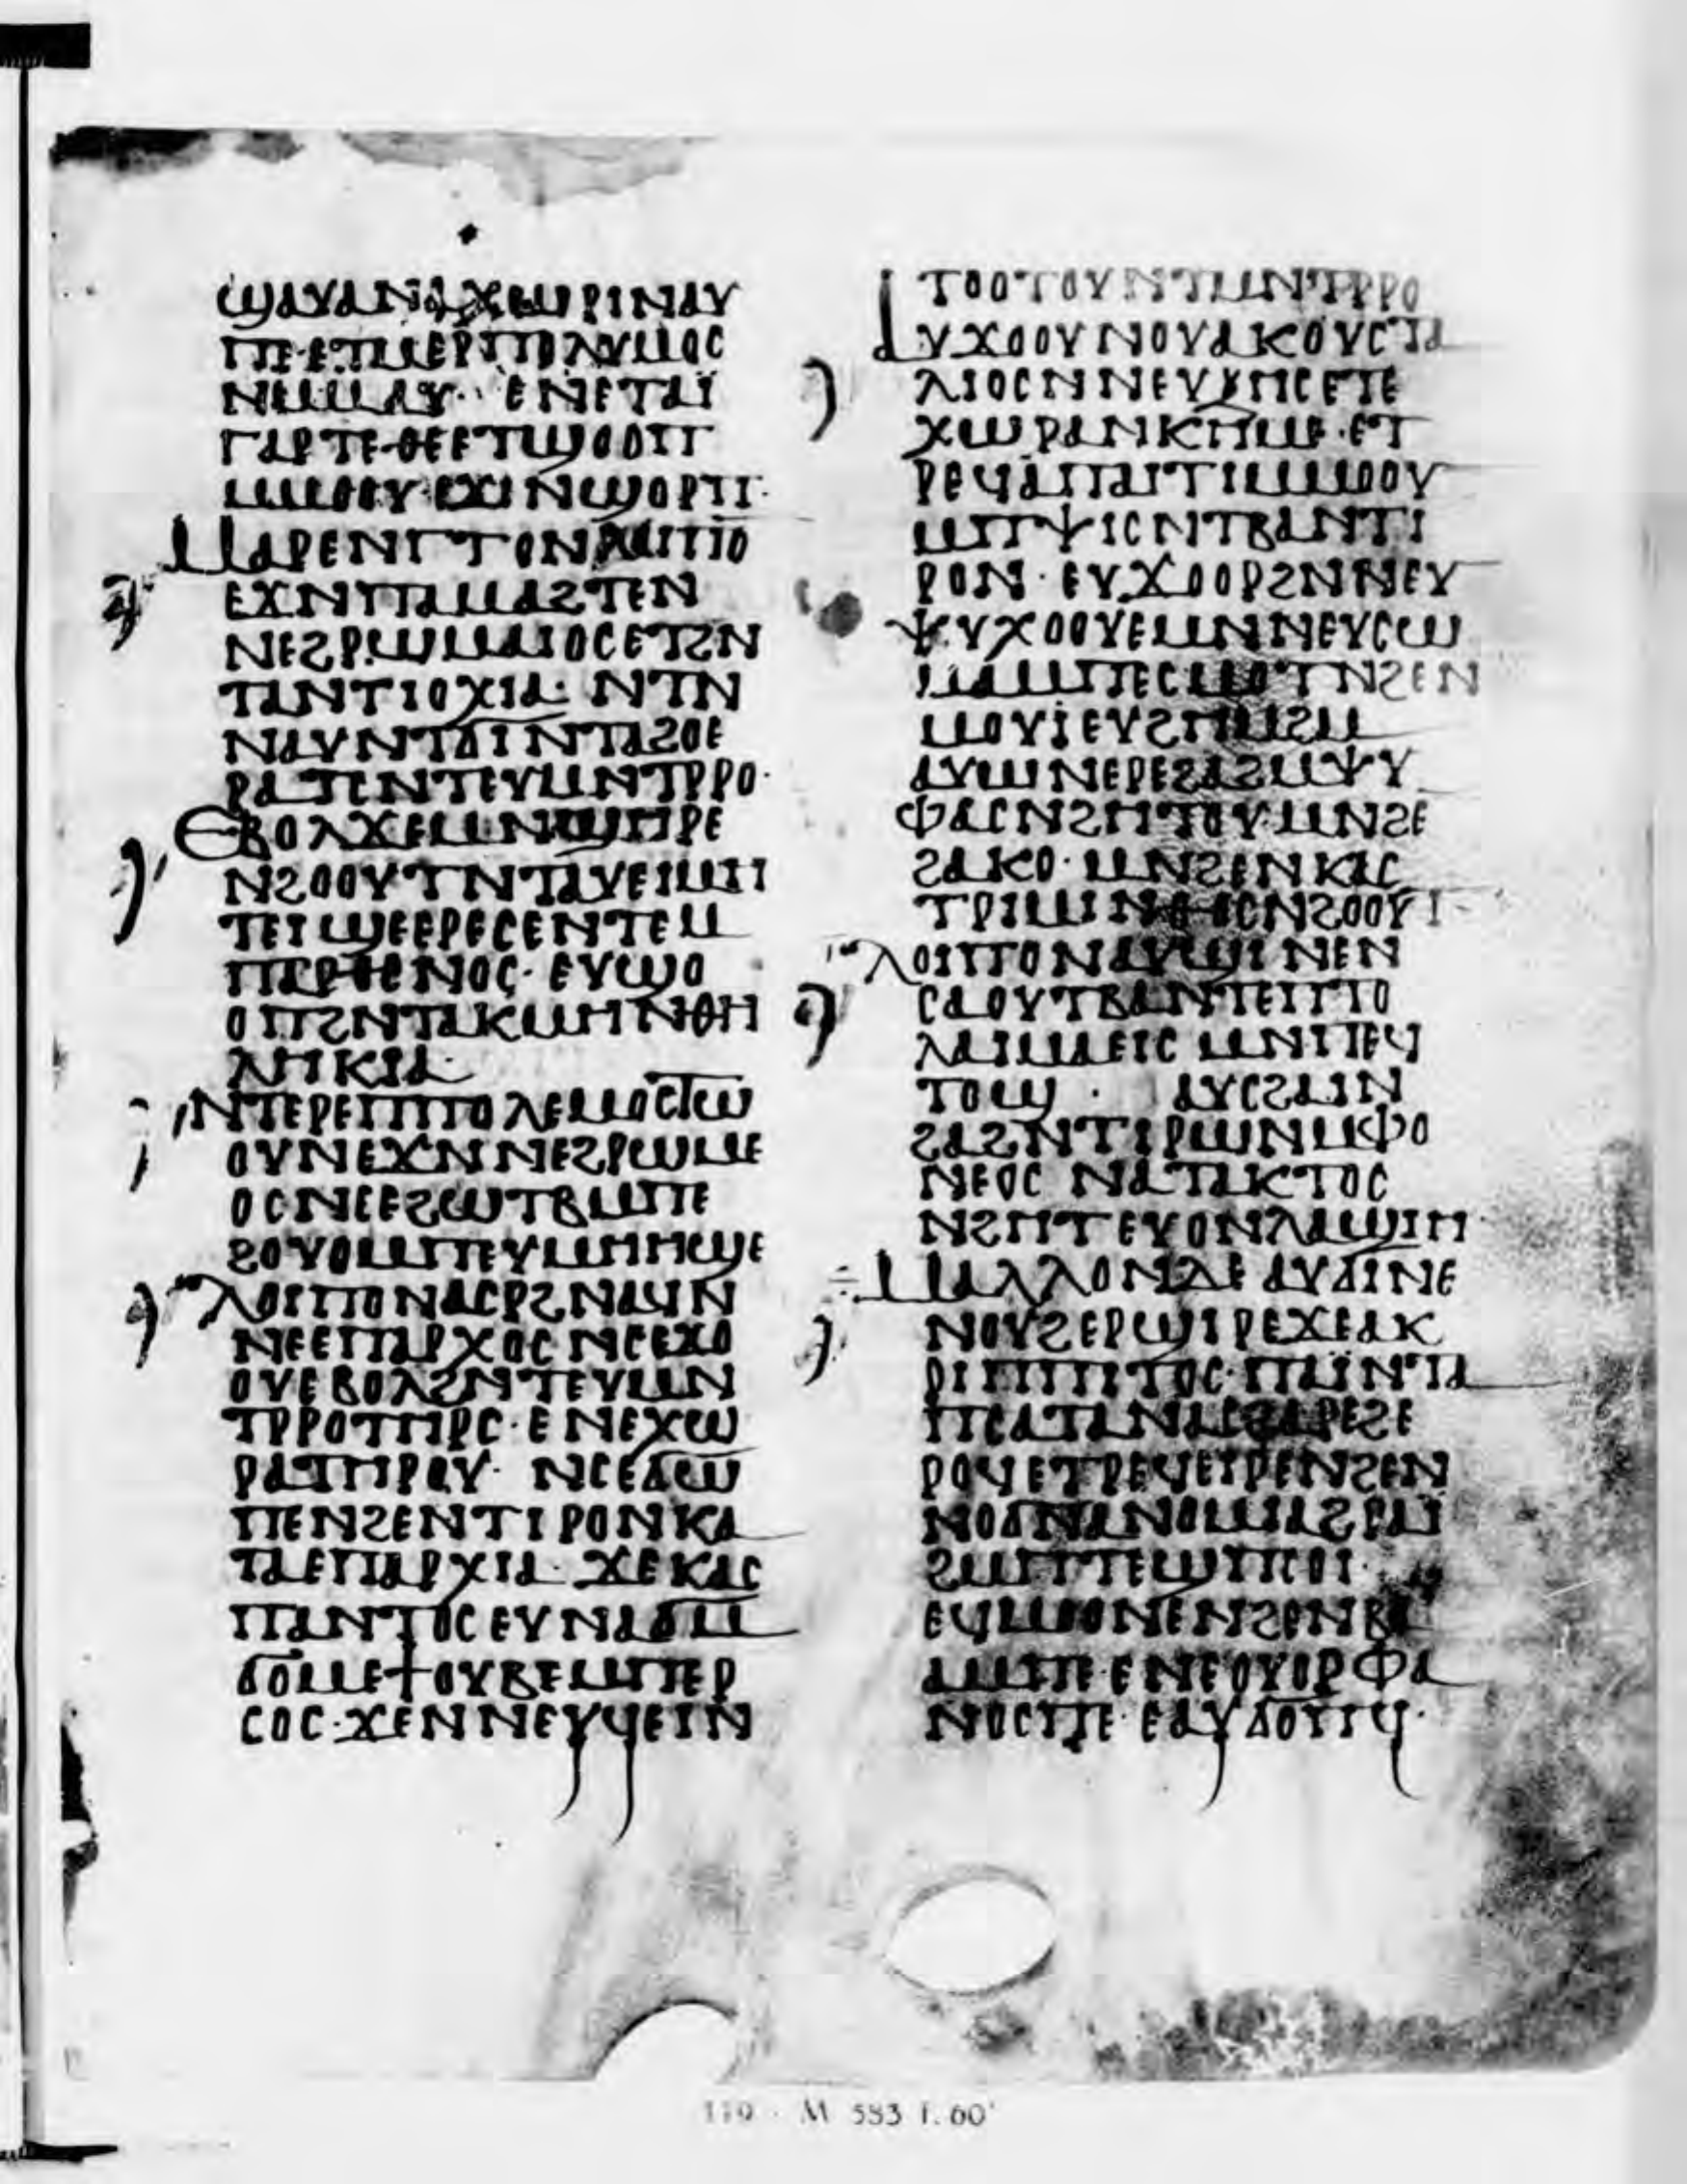 ϢⲀⲨⲀⲚⲀⲬⲰⲢⲒⲚⲀⲨ
ⲠⲈ·ⲈⲦⲘⲈⲢⲠⲠⲞⲖⲨⲘⲞⲤ
ⲚⲘⲘⲀⲨ· ⲈⲚⲈⲦⲀⲒ̈
ⲄⲀⲢⲦⲈⲐⲈⲈⲦϢⲞⲞⲠ
ⲘⲘⲞⲞⲨ·ϪⲒⲚϢⲞⲢⲠ·
ⲘⲀⲢⲈⲚⲦⲦⲞⲚⲘⲠⲒⲞ
ⲈϪⲚⲠⲘⲀϨⲦⲈⲚ
ⲚⲈϨⲢⲰⲘⲀⲒⲞⲤⲈⲦϨⲚ
ⲦⲀⲚⲦⲒⲞⲬⲒⲀ· ⲚⲦⲚ
ⲚⲀⲨⲚⲦϬⲒⲚⲦⲀϨⲞⲈ
ⲢⲀⲦⲈⲚⲦⲈⲨⲘⲚⲦⲢⲢⲞ·
ⲈⲂⲞⲖϪⲈⲘⲚϢⲎⲢⲈ
ⲚϨⲞⲞⲨⲦⲚⲦⲀⲨⲈⲒⲘⲎ
ⲦⲈⲒϢⲈⲈⲢⲈⲤⲈⲚⲦⲈⲘ
ⲠⲀⲢⲐⲈⲚⲞⲤ· ⲈⲨϢⲞ
ⲞⲠϨⲚⲦⲀⲔⲘⲎⲚⲐⲎ
ⲖⲎⲔⲒⲀ·
ⲚⲦⲈⲢⲈⲠⲠⲞⲖⲈⲘⲞⲤⲦⲰ
ⲞⲨⲚⲈϪⲚⲚⲈϨⲢⲰⲘⲈ
ⲞⲤⲚⲤⲈϨⲰⲦⲂⲘⲠⲈ
ϨⲞⲨⲞⲘⲠⲈⲨⲘⲎⲎϢⲈ
ⲖⲞⲒⲠⲞⲚⲀⲤⲢϨⲚⲀⲨⲚ
ⲚⲈⲈⲠⲀⲢⲬⲞⲤ ⲚⲤⲈϪⲞ
ⲞⲨⲈⲂⲞⲖϨⲚⲦⲈⲨⲘⲚ
ⲦⲢⲢⲞⲦⲎⲢⲤ·ⲈⲚⲈⲬⲰ
ⲢⲀⲦⲎⲢⲞⲨ· ⲚⲤⲈϬⲰ
ⲠⲈⲚϨⲈⲚⲦⲒⲢⲞⲚⲔⲀ
ⲦⲀⲈⲠⲀⲢⲬⲒⲀ· ϪⲈⲔⲀⲤ
ⲠⲀⲚⲦⲞⲤ ⲈⲨⲚⲀϬⲘ
ϬⲞⲘⲈϮⲞⲨⲂⲈⲘⲠⲈⲢ
ⲤⲞⲤ·ϪⲈⲚⲚⲈⲨϤⲈⲒⲚ
ⲦⲞⲞⲦⲞⲨⲚⲦⲘⲚⲦⲢⲢⲞ
ⲀⲨϪⲞⲞⲨⲚⲞⲨⲀⲔⲞⲨⲤⲦⲀ
ⲖⲒⲞⲤⲚⲚⲈⲨϨⲎⲤⲈⲦⲈ
ⲬⲰⲢⲀⲚⲔⲎⲘⲈ·ⲈⲦ
ⲢⲈϤⲀⲠⲀⲒⲦⲒⲘⲘⲞⲞⲨ
ⲘⲠⲮⲒⲤⲚⲦⲂⲀⲚⲦⲒ
ⲢⲞⲚ· ⲈⲨϪⲞⲞⲢϨⲚⲚⲈⲨ
ⲮⲨⲬⲞⲞⲨⲈⲘⲚⲚⲈⲨⲤⲰ
ⲘⲀⲘⲠⲈⲤⲘⲞⲦⲚϨⲈⲚ
ⲘⲞⲨⲒⲈⲨϨⲘϨⲘ
ⲀⲨⲰⲚⲈⲢⲈϨⲀϨⲘⲮⲨ
ⲪⲀⲤⲚϨⲎⲦⲞⲨ·ⲘⲚϨⲈ
ϨⲀⲔⲞ· ⲘⲚϨⲈⲚⲔⲀⲤ
ⲦⲢⲒⲘⲒⲚⲐⲞⲚϨⲞⲞⲨⲦ
ⲖⲞⲒⲠⲞⲚⲀⲨϢⲒⲚⲈⲚ
ⲤⲀⲞⲨⲦⲂⲀⲚⲦⲈⲒⲠⲞ
ⲖⲀⲒⲘⲀⲈⲒⲤ ⲘⲚⲠⲈϤ
ⲦⲞϢ · ⲀⲨⲤϨⲀⲒⲚ
ϨⲀϨⲚⲦⲒⲢⲰⲚⲚⲔⲪⲞ
ⲚⲈⲞⲤ ⲚⲀⲦⲀⲔⲦⲞⲤ
ⲚϨⲎⲦⲈⲨⲞⲚⲖⲀϢⲒⲎ·
ⲘⲀⲖⲖⲞⲚⲆⲈ ⲀⲨϬⲒⲚⲈ
ⲚⲞⲨϨⲈⲢϢⲒⲢⲈϪⲈⲀⲔ
ⲢⲒⲠⲠⲒⲦⲞⲤ·ⲠⲀⲒ̈ⲚⲦⲀ
ⲠⲤⲀⲦⲀⲚⲀⲤϨⲀⲢⲈϨⲈ
ⲢⲞϤⲈⲦⲢⲈϤⲈⲒⲢⲈⲚϨⲈⲚ
ⲚⲞϬⲚⲀⲚⲞⲘⲒⲀϨⲢⲀⲒ̈
ϨⲘⲠⲦⲈϢⲠⲤⲞⲒ·
ⲈϤⲘⲞⲞⲚⲈⲚϨⲈⲚⲂⲀ
ⲀⲘⲠⲈ·ⲈⲚⲈⲞⲨⲞⲢⲪⲀ
ⲚⲞⲤⲠⲈ·ⲈⲀⲨϬⲞⲠϤ·
119 · M 583 f. 60ʳ